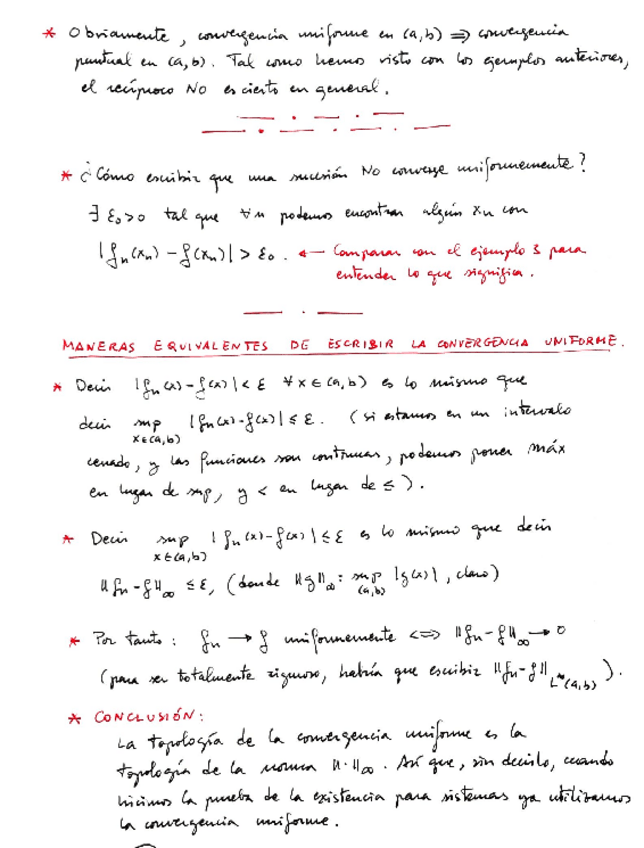 * Obviamente, convergencia uniforme en (a,b) ⟹ convergencia
puntual en (a,b). Tal como hemos visto con los ejemplos anteriores,
el recíproco NO es cierto en general.
* ¿Cómo escribir que una sucesión NO converge uniformemente?
∃ ε₀>0 tal que ∀n podemos encontrar algún xn con
|fn(xn) - f(xn)| > ε₀. ← Comparar con el ejemplo 3 para
entender lo que significa.
MANERAS EQUIVALENTES DE ESCRIBIR LA CONVERGENCIA UNIFORME.
* Decir |fn(x) - f(x)| < ε ∀x∈(a,b) es lo mismo que
decir sup |fn(x) - f(x)| ≤ ε. (si estamos en un intervalo
x∈(a,b)
cerrado, y las funciones son continuas, podemos poner máx
en lugar de sup, y < en lugar de ≤).
* Decir sup |fn(x) - f(x)| ≤ ε es lo mismo que decir
x∈(a,b)
||fn - f||∞ ≤ ε, (donde ||g||∞: sup |g(x)|, claro)
(a,b)
* Por tanto: fn → f uniformemente ⟺ ||fn - f||∞ → 0
(para ser totalmente riguroso, habría que escribir ||fn - f||L∞(a,b)).
* CONCLUSIÓN:
La topología de la convergencia uniforme es la
topología de la norma ||·||∞. Así que, sin decirlo, cuando
hicimos la prueba de la existencia para sistemas ya utilizamos
la convergencia uniforme.